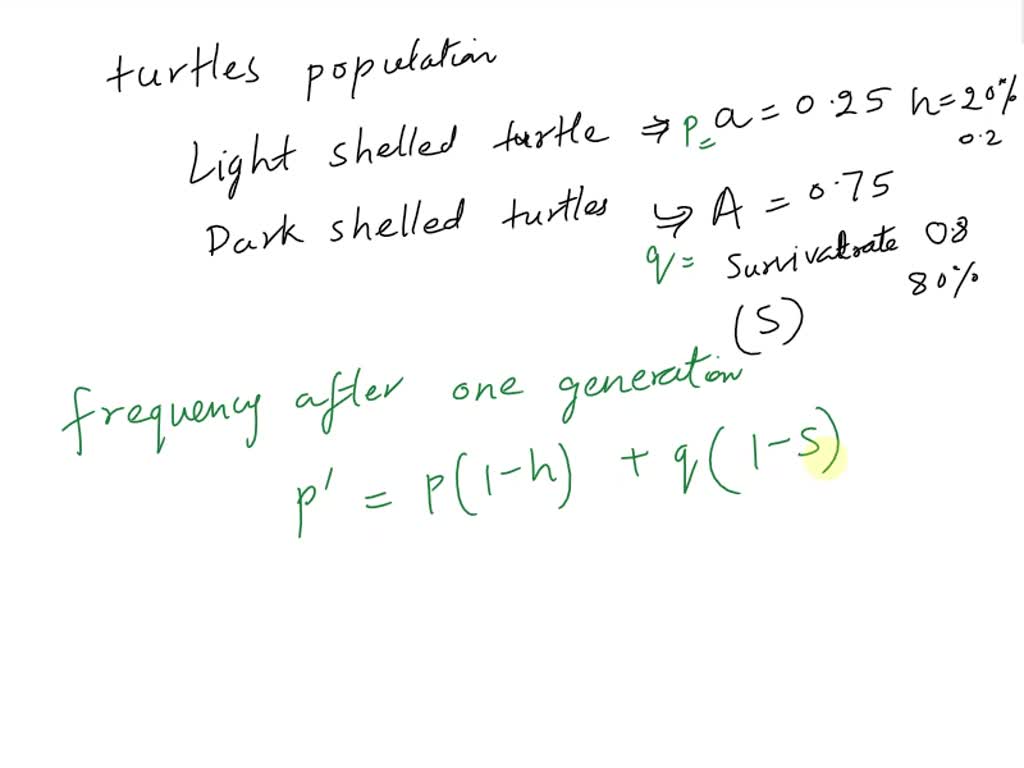 turtles population
Light shelled turtle ⇒ p= a = 0.25 h = 20%
0.2
Dark shelled turtles ↪ A = 0.75
q = Survival rate 0.8
80%
(S)
frequency after one generation
p' = p(1-h) + q(1-s)